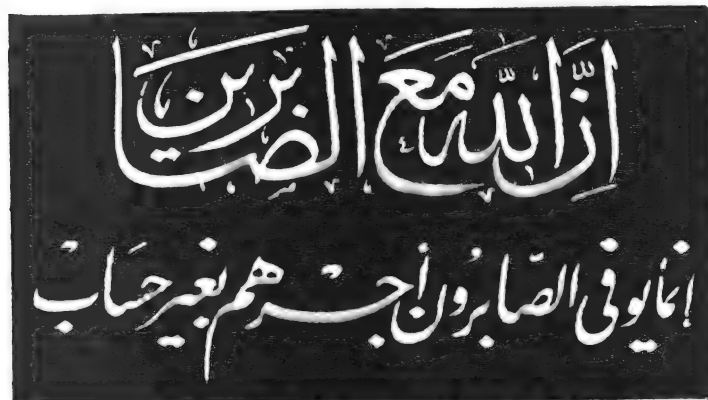 إِنَّ اللّٰهَ مَعَ الصَّابِرِين
إنما يوفى الصّابرون أجرهم بغير حسَاب